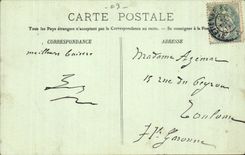 CARTE POSTALE
Tous les Pays étrangers n'acceptent pas la Correspondance au recto. — Se renseigner à la Poste
CORRESPONDANCE
ADRESSE
meilleurs baisers
Madame Azemar
15 rue du Peyrou
Toulouse
Hte Garonne